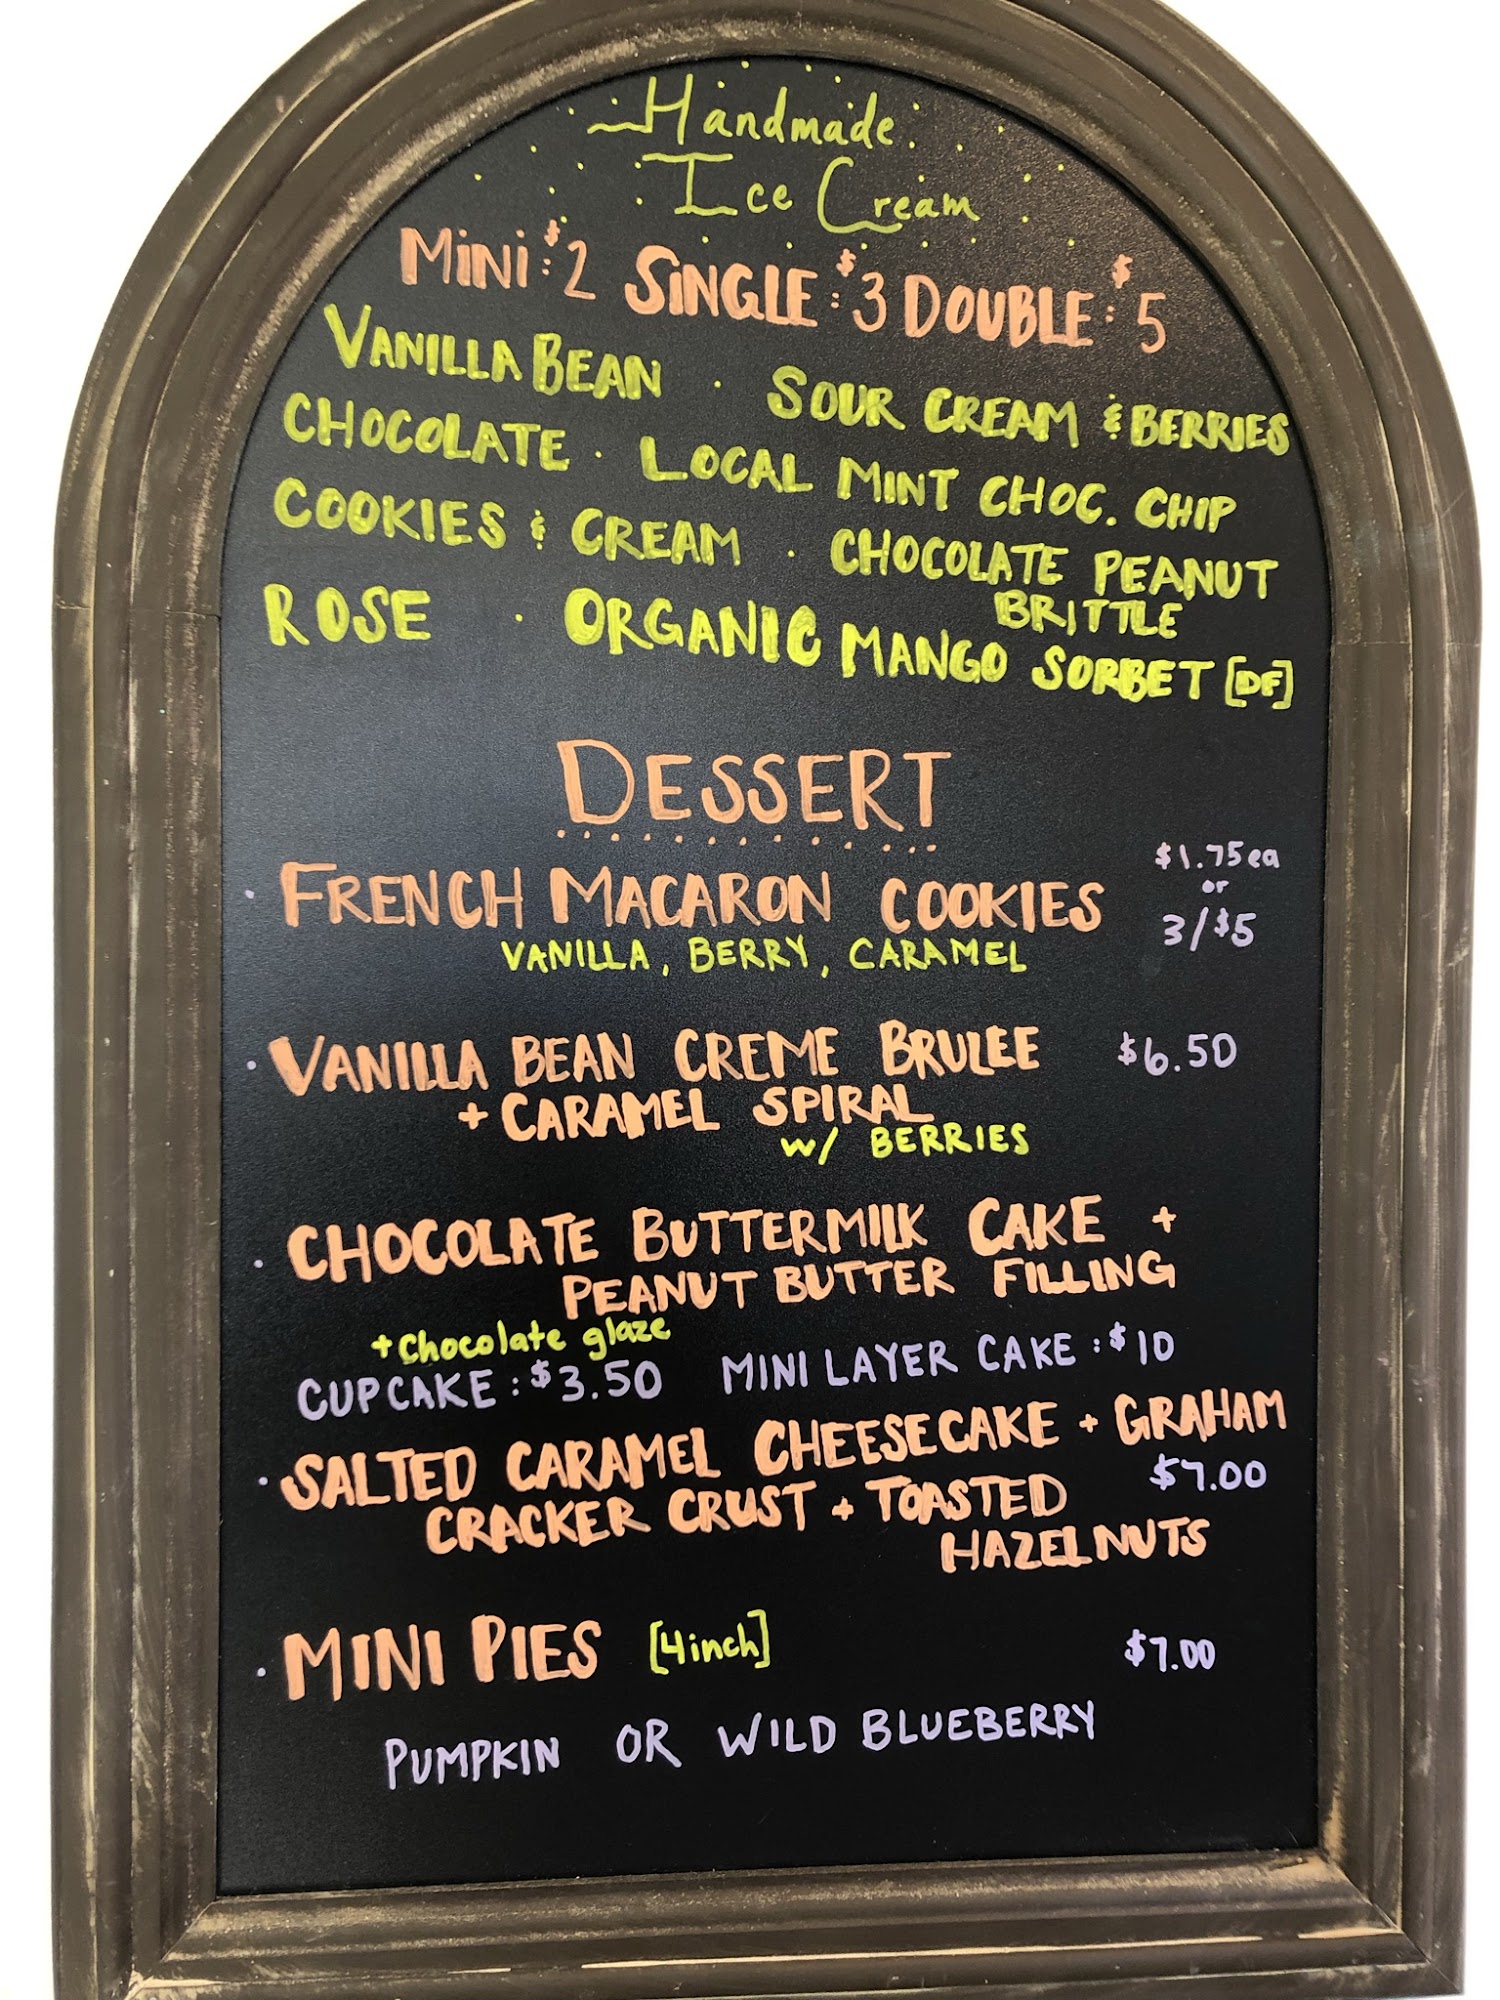 Handmade
Ice Cream
MINI: $2 SINGLE: $3 DOUBLE: $5
VANILLA BEAN · SOUR CREAM & BERRIES
CHOCOLATE · LOCAL MINT CHOC. CHIP
COOKIES & CREAM · CHOCOLATE PEANUT
BRITTLE
ROSE · ORGANIC MANGO SORBET [DF]
DESSERT
· FRENCH MACARON COOKIES $1.75 ea
or
3/$5
VANILLA, BERRY, CARAMEL
· VANILLA BEAN CREME BRULEE $6.50
+ CARAMEL SPIRAL
W/ BERRIES
· CHOCOLATE BUTTERMILK CAKE +
PEANUT BUTTER FILLING
+ Chocolate glaze
CUPCAKE: $3.50 MINI LAYER CAKE: $10
· SALTED CARAMEL CHEESECAKE + GRAHAM
CRACKER CRUST + TOASTED $7.00
HAZELNUTS
· MINI PIES [4inch] $7.00
PUMPKIN OR WILD BLUEBERRY